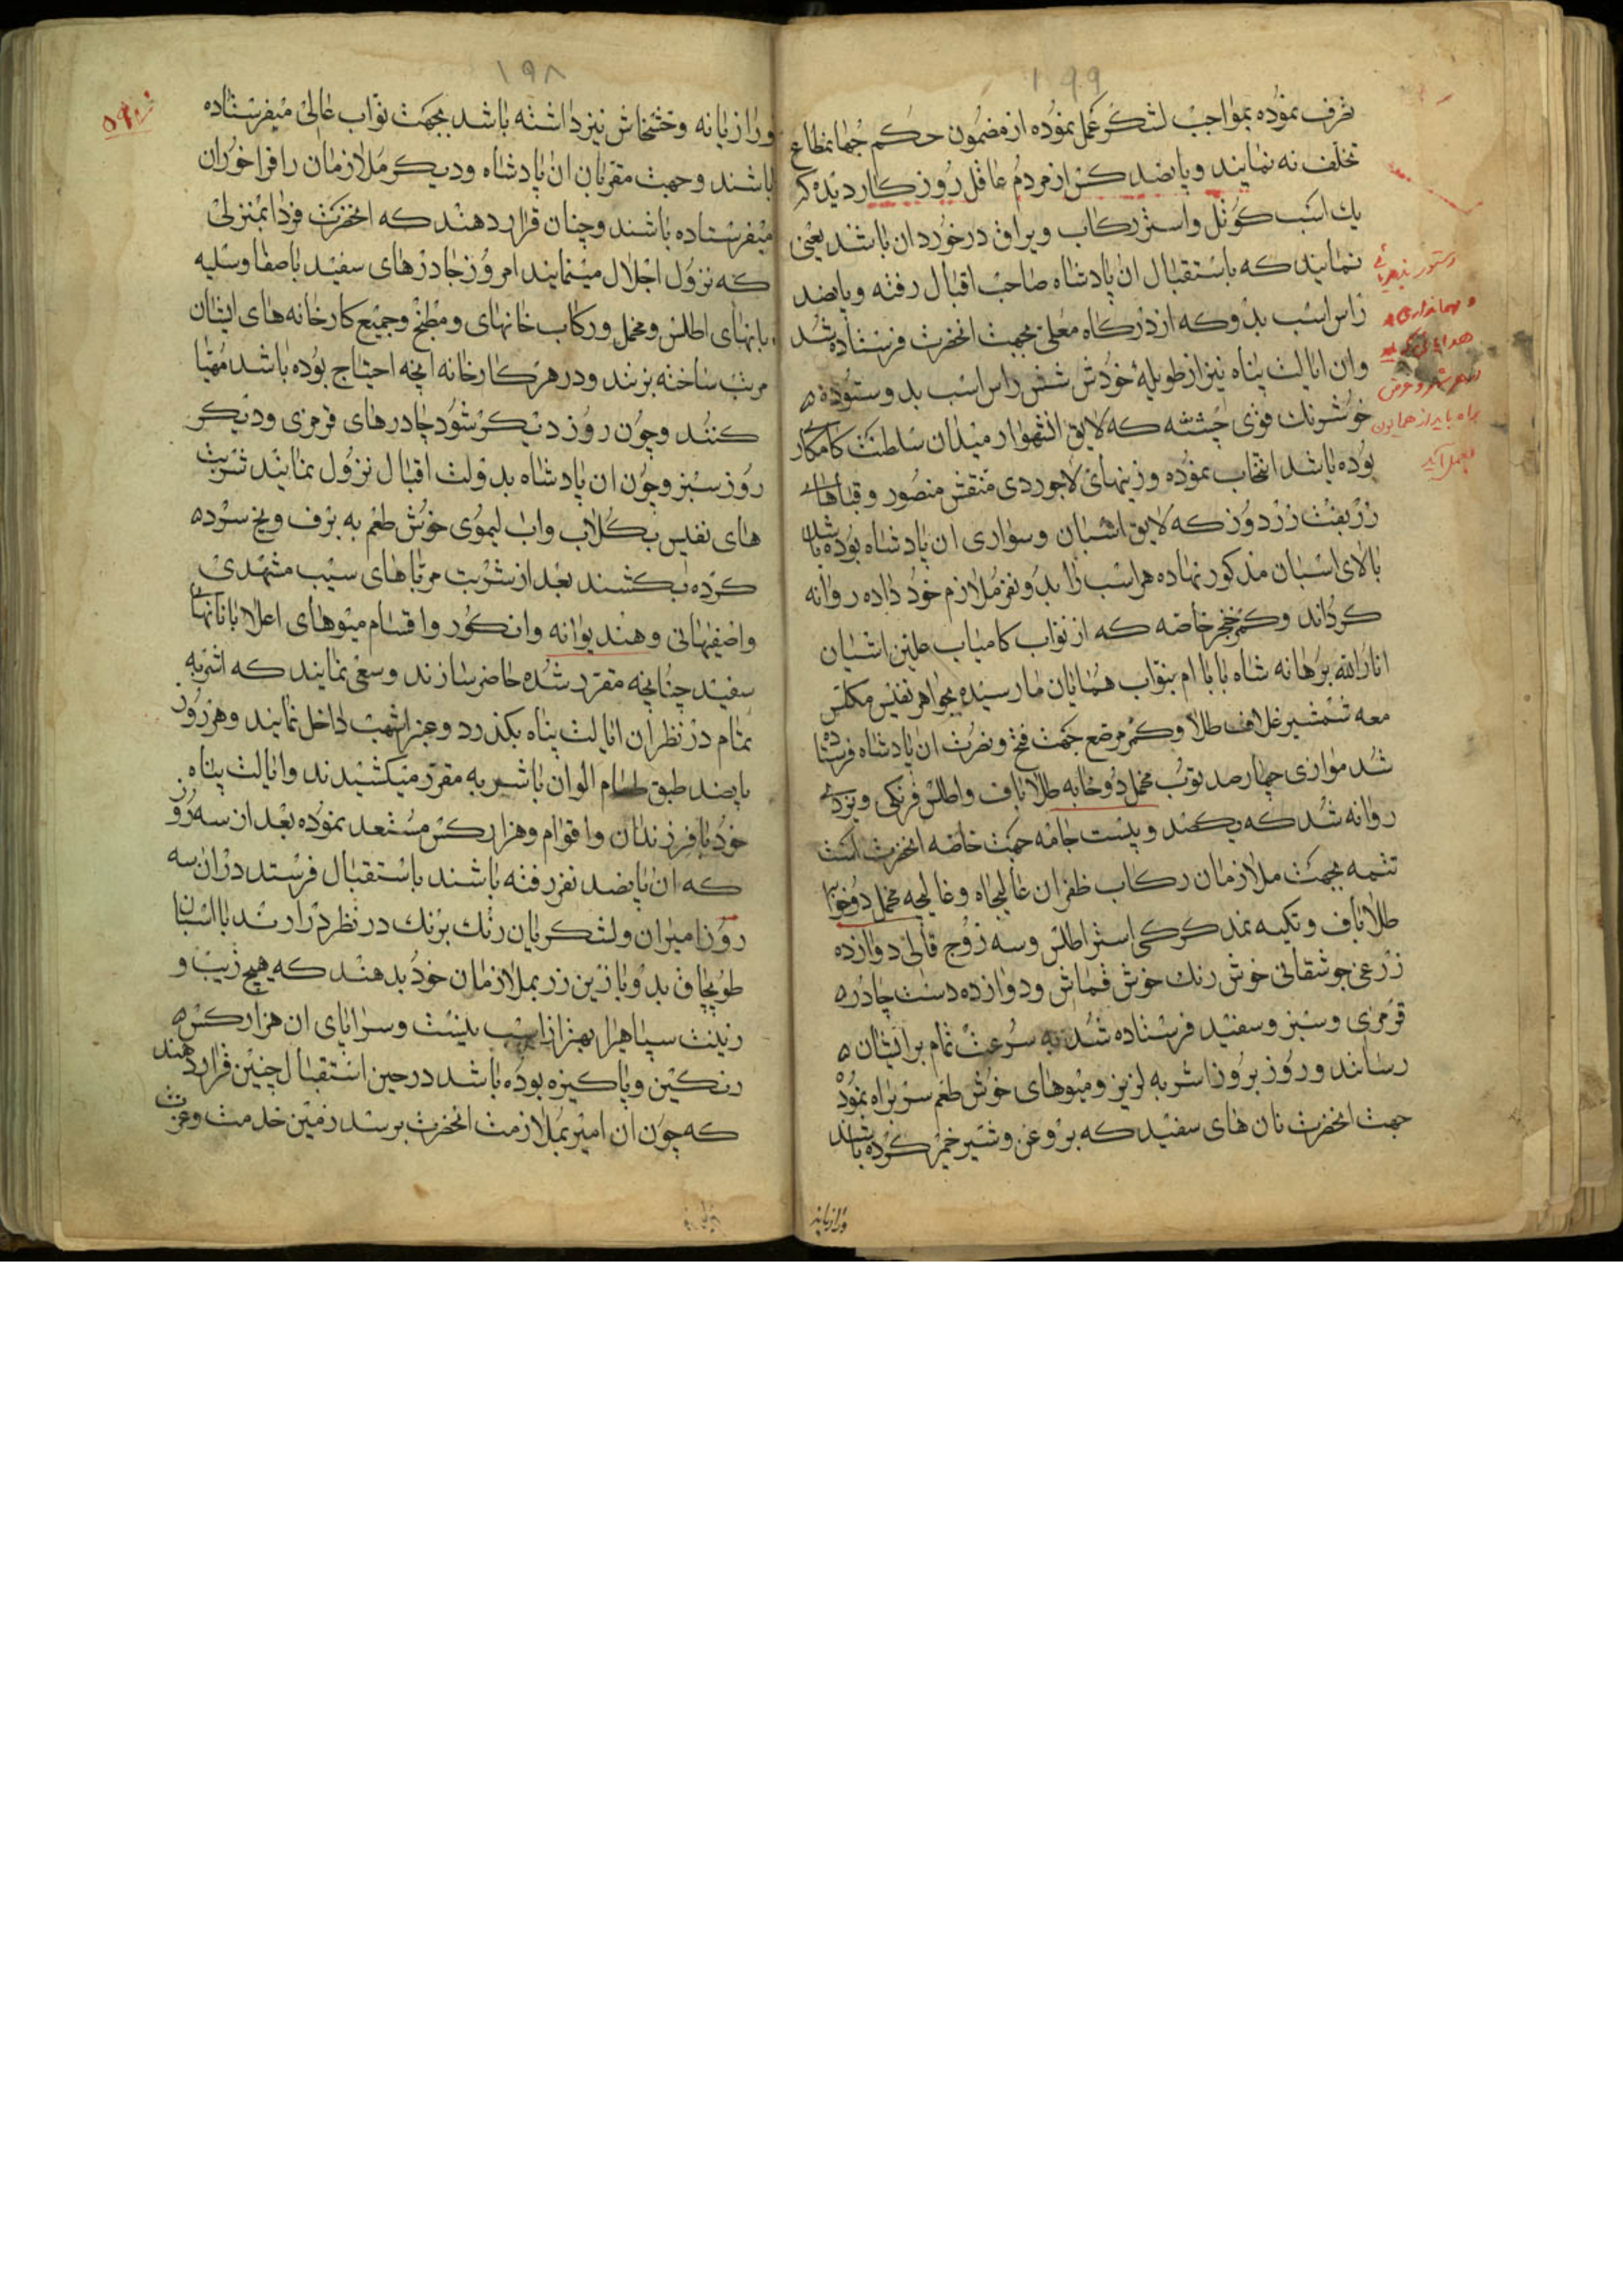 ۱۹۹
تصرف نموده بمواجب لشکر عمل نموده از مضمون حکم جهانمطاع
تخلف نه نمایند و پانصد کس از مردم عاقل روزکار دیده که
یك اسب کوتل و استر رکاب و یراق درخور دان باشد یعنی
نمایند که باستقبال ان پادشاه صاحب اقبال رفته و پانصد
راس اسب بدو که از درکاه معلی بجهت انحضرت فرستاده شد
وان ایالت پناه نیز از طویلهٔ خودش شش راس اسب بدو ستوده
خوشرنك قوی جثه که لایق انشهوار میدان سلطنت کامکار
بوده باشد انتخاب نموده و زینهای لاجوردی منقش منصور و قباهای
زربفت زردوز که لایق اسبان و سواری ان پادشاه بوده باشد
بالای اسبان مذکور نهاده هر اسب را بدو نفر ملازم خود داده روانه
کرداند و کمر خنجر خاصه که از نواب کامیاب علین اشیان
انارالله برهانه شاه بابا ام بنواب همایان ما رسیده بجواهر نفیس مکلس
معه شمشیر غلاف طلا و کمر مرصع جهت فتح و نصرت ان پادشاه فرستاده
شد موازی چهارصد توپ مخمل دوخابه طلاباف و اطلس فرنکی و یزدی
روانه شد که یکصد و بیست جامه جهت خاصه انحضرت است
تتمه بجهت ملازمان رکاب ظفر ان عالیجاه و غالیچه مخمل دوخوابه
طلاباف و تکیه نمد کرکی استر اطلس و سه زوج قالی دوازده
زرعی جوشقانی خوش رنك خوش قماش و دوازده دست چادره
قرمزی و سبز و سفید فرستاده شد به سرعت تمام برایشان
رسانند و روز بروز اشربه لزیز و میوهای خوش طعم سربراه نموده
جهت انحضرت نان های سفید که بروغن و شیر خمیر کرده باشند
ورازیانه
دستور پذیرائی
و مهمانداری
۱۹۸
ورازیانه و خشخاش نیز داشته باشد بجهت نواب عالی میفرستاده
باشند و جهت مقربان ان پادشاه و دیکر ملازمان را فراخوران
میفرستاده باشند و چنان قرار دهند که انحضرت فردا بمنزلی
که نزول اجلال مینمایند امروز جادرهای سفید باصفا وسلیه
بانهای اطلس و مخمل و رکاب خانهای و مطبخ و جمیع کارخانه های ایشان
مرتب ساخته بزنند و در هر کارخانه انچه احتیاج بوده باشد مهیا
کنند و چون روز دیکر شود چادرهای قرمزی و دیکر
روز سبز و چون ان پادشاه بدولت اقبال نزول نمایند شربت
های نفیس بکلاب واب لیموی خوش طعم به برف و یخ سرده
کرده بکشند بعد از شربت مرباهای سیب مشهدی
واصفهانی و هندیوانه وانکور واقسام میوهای اعلا بانانهای
سفید چنانچه مقرر شده حاضر سازند وسعی نمایند که اشربه
تمام در نظران ایالت پناه بکذرد و عنبر اشهب داخل نمایند و هر روز
پانصد طبق طعام الوان باشربه مقرر میکشیدند وایالت پناه
خود بافرزندان واقوام و هزار کس مستعد نموده بعد از سه روز
که ان پانصد نفر رفته باشند باستقبال فرستد دران سه
روز امیران ولشکریان رنك برنك در نظر درارند بااسبان
طوبچاق بدو بازین زر بملازمان خود بدهند که هیچ زیب و
زینت سپاهیرا بهتر از اسب نیست وسراپای ان هزار کس
رنکین و پاکیزه بوده باشد در حین استقبال چنین قرار دهند
که چون ان امیر بملازمت انحضرت برسد زمین خدمت وعزت